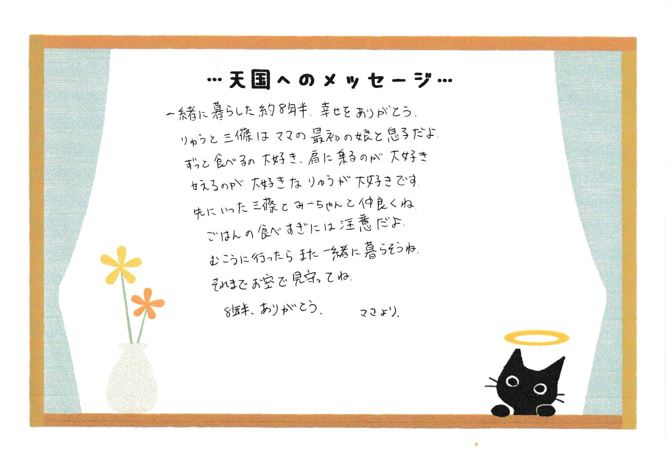 …天国へのメッセージ…
一緒に暮らした約8年半、幸せをありがとう。
りゅうと三篠はママの最初の娘と息子だよ。
ずっと食べるの大好き、肩に乗るのが大好き
甘えるのが大好きなりゅうが大好きです。
先にいった三篠とみーちゃんと仲良くね
ごはんの食べすぎには注意だよ。
むこうに行ったらまた一緒に暮らそうね。
それまでお空で見守ってね。
8年半、ありがとう。 ママより。